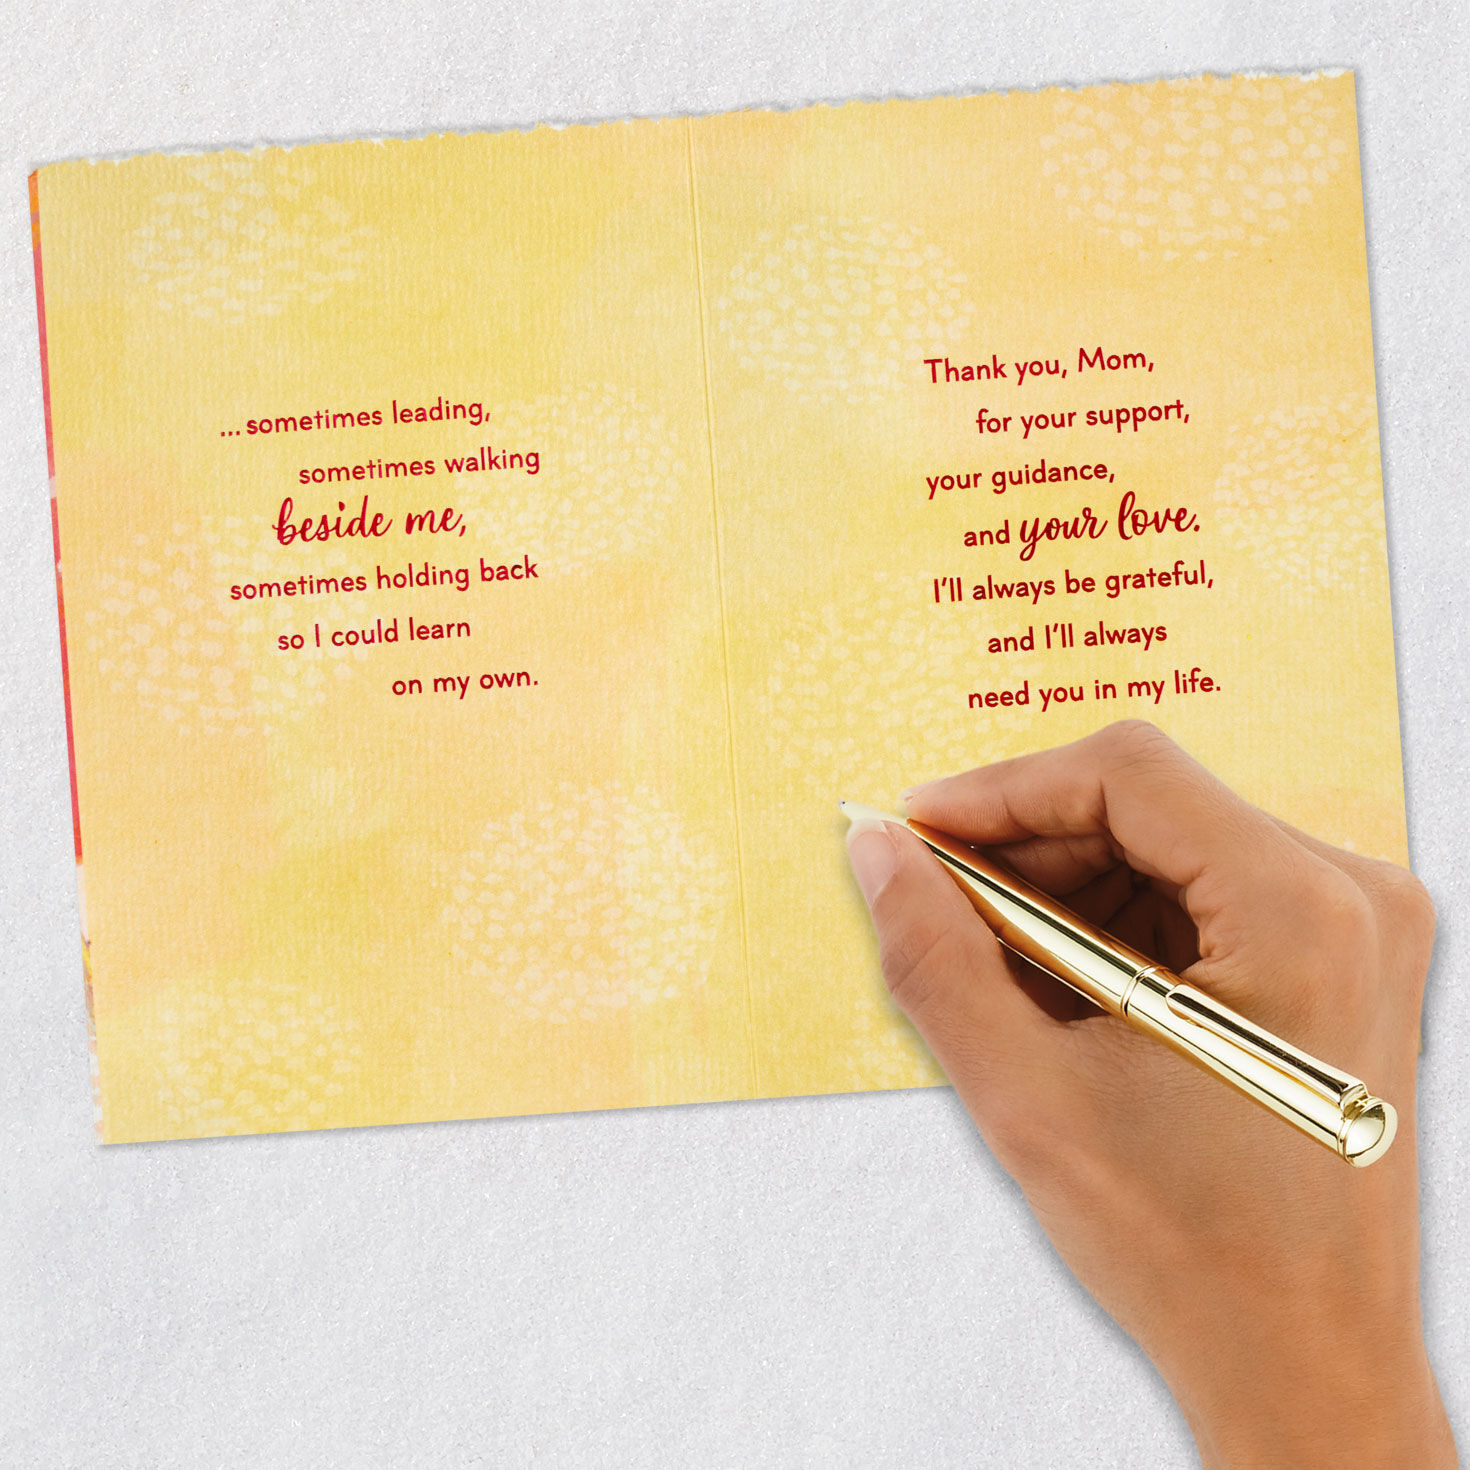 ...sometimes leading,
sometimes walking
beside me,
sometimes holding back
so I could learn
on my own.
Thank you, Mom,
for your support,
your guidance,
and your love.
I'll always be grateful,
and I'll always
need you in my life.